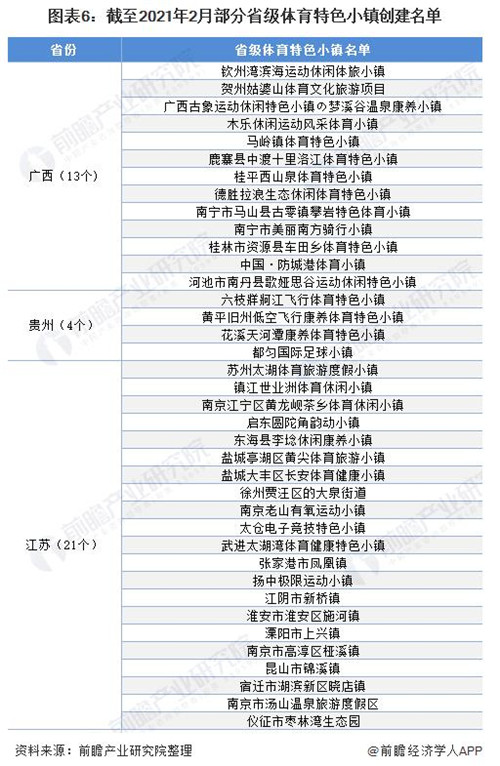 图表6：截至2021年2月部分省级体育特色小镇创建名单
省份
省级体育特色小镇名单
广西（13个）
钦州湾滨海运动休闲体旅小镇
贺州姑婆山体育文化旅游项目
广西古象运动休闲特色小镇の梦溪谷温泉康养小镇
木乐休闲运动风采体育小镇
马岭镇体育特色小镇
鹿寨县中渡十里洛江体育特色小镇
桂平西山泉体育特色小镇
德胜拉浪生态休闲体育特色小镇
南宁市马山县古零镇攀岩特色体育小镇
南宁市美丽南方骑行小镇
桂林市资源县车田乡体育特色小镇
中国·防城港体育小镇
河池市南丹县歌娅思谷运动休闲特色小镇
贵州（4个）
六枝牂牁江飞行体育特色小镇
黄平旧州低空飞行康养体育特色小镇
花溪天河潭康养体育特色小镇
都匀国际足球小镇
江苏（21个）
苏州太湖体育旅游度假小镇
镇江世业洲体育休闲小镇
南京江宁区黄龙岘茶乡体育休闲小镇
启东圆陀角韵动小镇
东海县李埝休闲康养小镇
盐城亭湖区黄尖体育旅游小镇
盐城大丰区长安体育健康小镇
徐州贾汪区的大泉街道
南京老山有氧运动小镇
太仓电子竞技特色小镇
武进太湖湾体育健康特色小镇
张家港市凤凰镇
扬中极限运动小镇
江阴市新桥镇
淮安市淮安区施河镇
溧阳市上兴镇
南京市高淳区桠溪镇
昆山市锦溪镇
宿迁市湖滨新区晓店镇
南京市汤山温泉旅游度假区
仪征市枣林湾生态园
资料来源：前瞻产业研究院整理
@前瞻经济学人APP
前瞻产业研究院